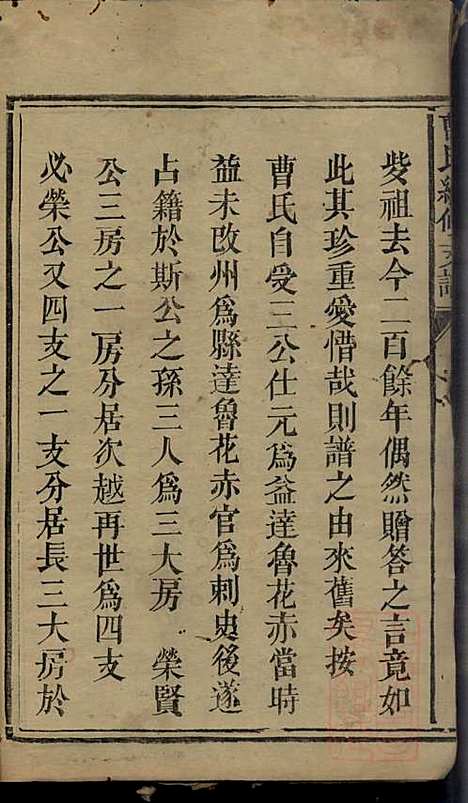 曹氏續修支譜
發祖去今二百餘年偶然贈答之言竟如
此其珍重愛惜哉則譜之由來舊矣按
曹氏自受三公仕元為益達魯花赤當時
益未改州為縣達魯花赤官為刺史後遂
占籍於斯公之孫三人為三大房　榮賢
公三房之一房分居次越再世為四支
必榮公又四支之一支分居長三大房於